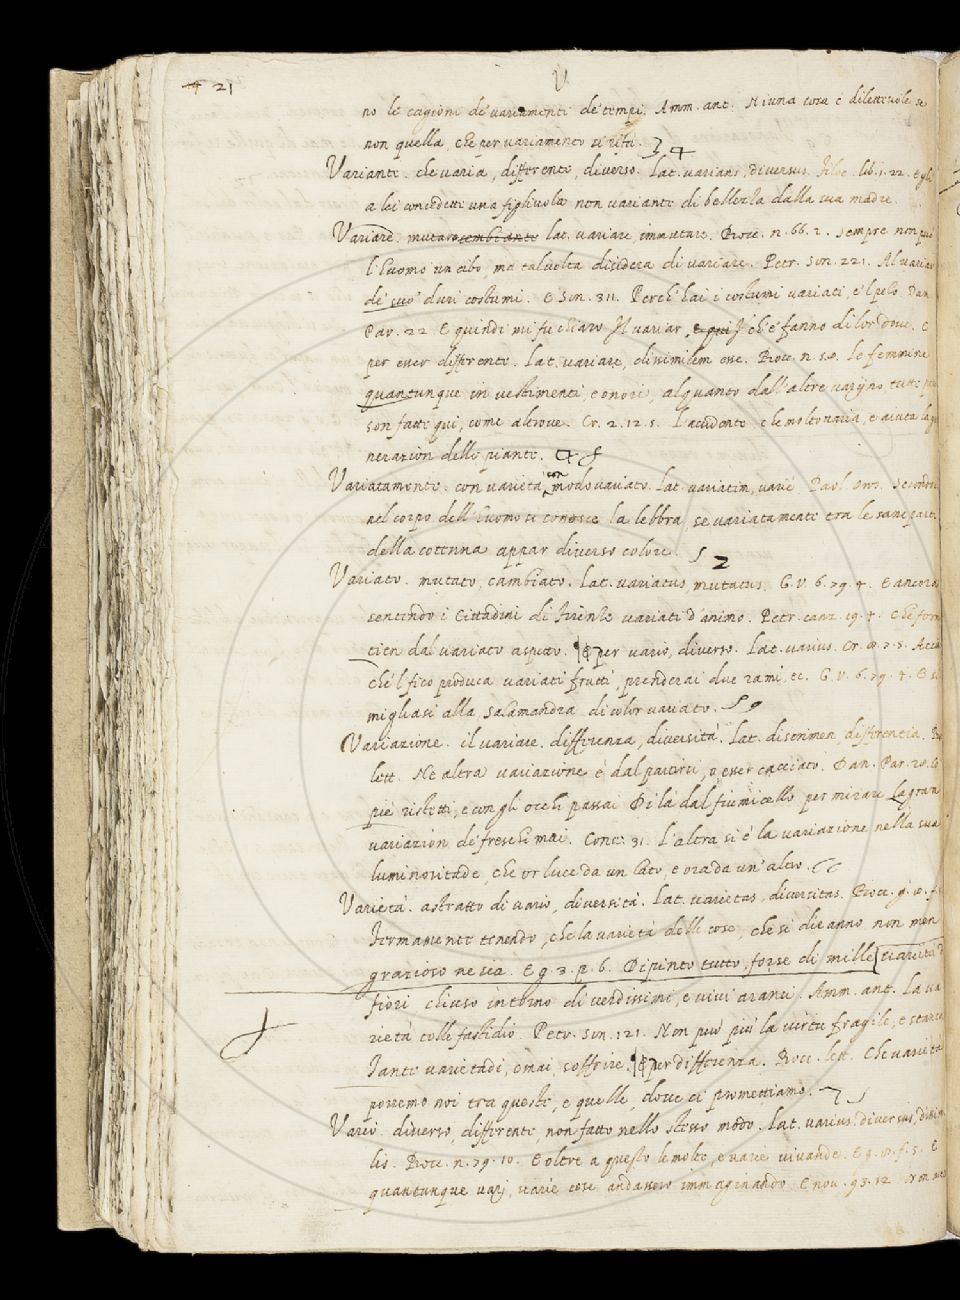 21 V
no le cagioni de' variamenti de' tempi. Amm. ant. Niuna cosa è dilettevole se
non quella che per variamento si rifà.
Variante. che varia, differente, diverso. Lat. varians, diversus. Filoc. lib. 1. 22. Egli
a lei concedette una figliuola non variante di bellezza dalla sua madre.
Variare. mutar sembiante lat. variare immutare. Bocc. n. 66. 2. sempre non può
l'huomo un cibo, ma talvolta disidera di variare. Petr. Son. 221. Al variar
de' suo' duri costumi. E Son. 311. Perch' hai i costumi variati, e 'l pelo. Dan.
Par. 22 E quindi mi fu chiaro Il variar, e qui che fanno di lor dove. E
per esser differente. Lat. variare, dissimilem esse. Bocc. n. 50. le femmine
quantunque in vestimenti, e onori, alquanto dall'altre varijno tutte per
son fatte qui, come altrove. Cr. 2. 12. 5. L'accidente, che molto varia, e aiuta la ge
nerazion delle piante.
Variatamente. con varietà, con modo variato. Lat. variatim, varie. Paol. Oros. Secondo
nel corpo dell'huomo si conosce la lebbra, se variatamente tra le sane parti
della cotenna appar diverso colore. 2
Variato. mutato, cambiato. Lat. variatus, mutatus. G. V. 6. 79. 4. E ancora
sentendo i Cittadini di Firenze variati d'animo. Petr. canz. 19. 4. Che forse
tien dal variato aspetto. per vario, diverso. Lat. varius. Cr. 5. Acciò
che 'l fico produca variati frutti, prenderai due rami, ec. G. V. 6. 79. 4. E so
migliasi alla Salamandra di color variato.
Variazione. il variare. differenza, diversità. Lat. discrimen, differentia. Bocc
lett. Nè altra variazione è dal partirsi, o esser cacciato. Dan. Par. 28. Co
piè ristetti, e con gli occhi passai Di là dal fiumicello per mirare La gran
variazion de' freschi mai. Conv. 31. L'altra si è la variazione nella sua
luminositade, che or luce da un lato, e ora da un'altro.
Varietà. astratto di vario, diversità. Lat. varietas, diversitas. Bocc. g. 10. f.
Fermamente tenendo, che la varietà delle cose, che si diranno, non men
graziosa ne sia. E g. 3. p. 6. Dipinto tutto, forse di mille varietà d
fiori chiuso intorno di verdissimi, e vivi aranci. Amm. ant. La va
rietà tolle fastidio. Petr. Son. 121. Non può più la virtù fragile, e stanca
Tante varietadi, omai, soffrire. per differenza. Bocc. lett. Che varietà
porremo noi tra questi, e quelle, dove ci promettiamo.
Vario. diverso, differente, non fatto nello stesso modo. Lat. varius, diversus, dissimi
lis. Bocc. n. 79. 10. E oltre a questo le molte, e varie vivande. E g. 10. f. 5. E
quantunque varj, varie cose andassero immaginando. E nov. 93. 12